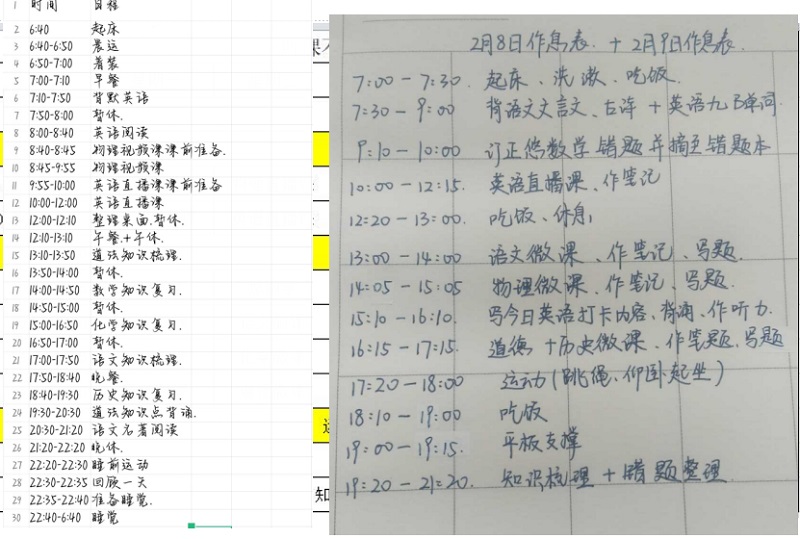 1 时间 日程
2 6:40 起床
3 6:40-6:50 晨运
4 6:50-7:00 着装
5 7:00-7:10 早餐
6 7:10-7:50 背默英语
7 7:50-8:00 暂休.
8 8:00-8:40 英语阅读
9 8:40-8:45 物理视频课课前准备.
10 8:45-9:55 物理视频课
11 9:55-10:00 英语直播课课前准备
12 10:00-12:00 英语直播课
13 12:00-12:10 整理桌面.暂休.
14 12:10-13:10 午餐.+午休.
15 13:10-13:50 道法知识梳理.
16 13:50-14:00 暂休.
17 14:00-14:50 数学知识复习.
18 14:50-15:00 暂休.
19 15:00-16:50 化学知识复习.
20 16:50-17:00 暂休.
21 17:00-17:50 语文知识梳理.
22 17:50-18:40 晚餐.
23 18:40-19:30 历史知识复习.
24 19:30-20:30 道法知识点背诵.
25 20:30-21:20 语文名著阅读
26 21:20-22:20 晚休.
27 22:20-22:30 睡前运动
28 22:30-22:35 回顾一天
29 22:35-22:40 准备睡觉.
30 22:40-6:40 睡觉
2月8日作息表. + 2月9日作息表.
7:00-7:30. 起床、洗漱、吃饭.
7:30-9:00 背语文文言文、古诗 + 英语九B单词
9:10-10:00 订正悠数学错题并摘至错题本
10:00-12:15. 英语直播课、作笔记
12:20-13:00. 吃饭、休息
13:00-14:00 语文微课、作笔记、写题.
14:05-15:05 物理微课、作笔记、写题.
15:10-16:10. 写今日英语打卡内容、背诵、作听力.
16:15-17:15. 道德+历史微课、作笔题、写题
17:20-18:00 运动(跳绳、仰卧起坐)
18:10-19:00 吃饭
19:00-19:15. 平板支撑
19:20-21:20. 知识梳理 + 错题整理